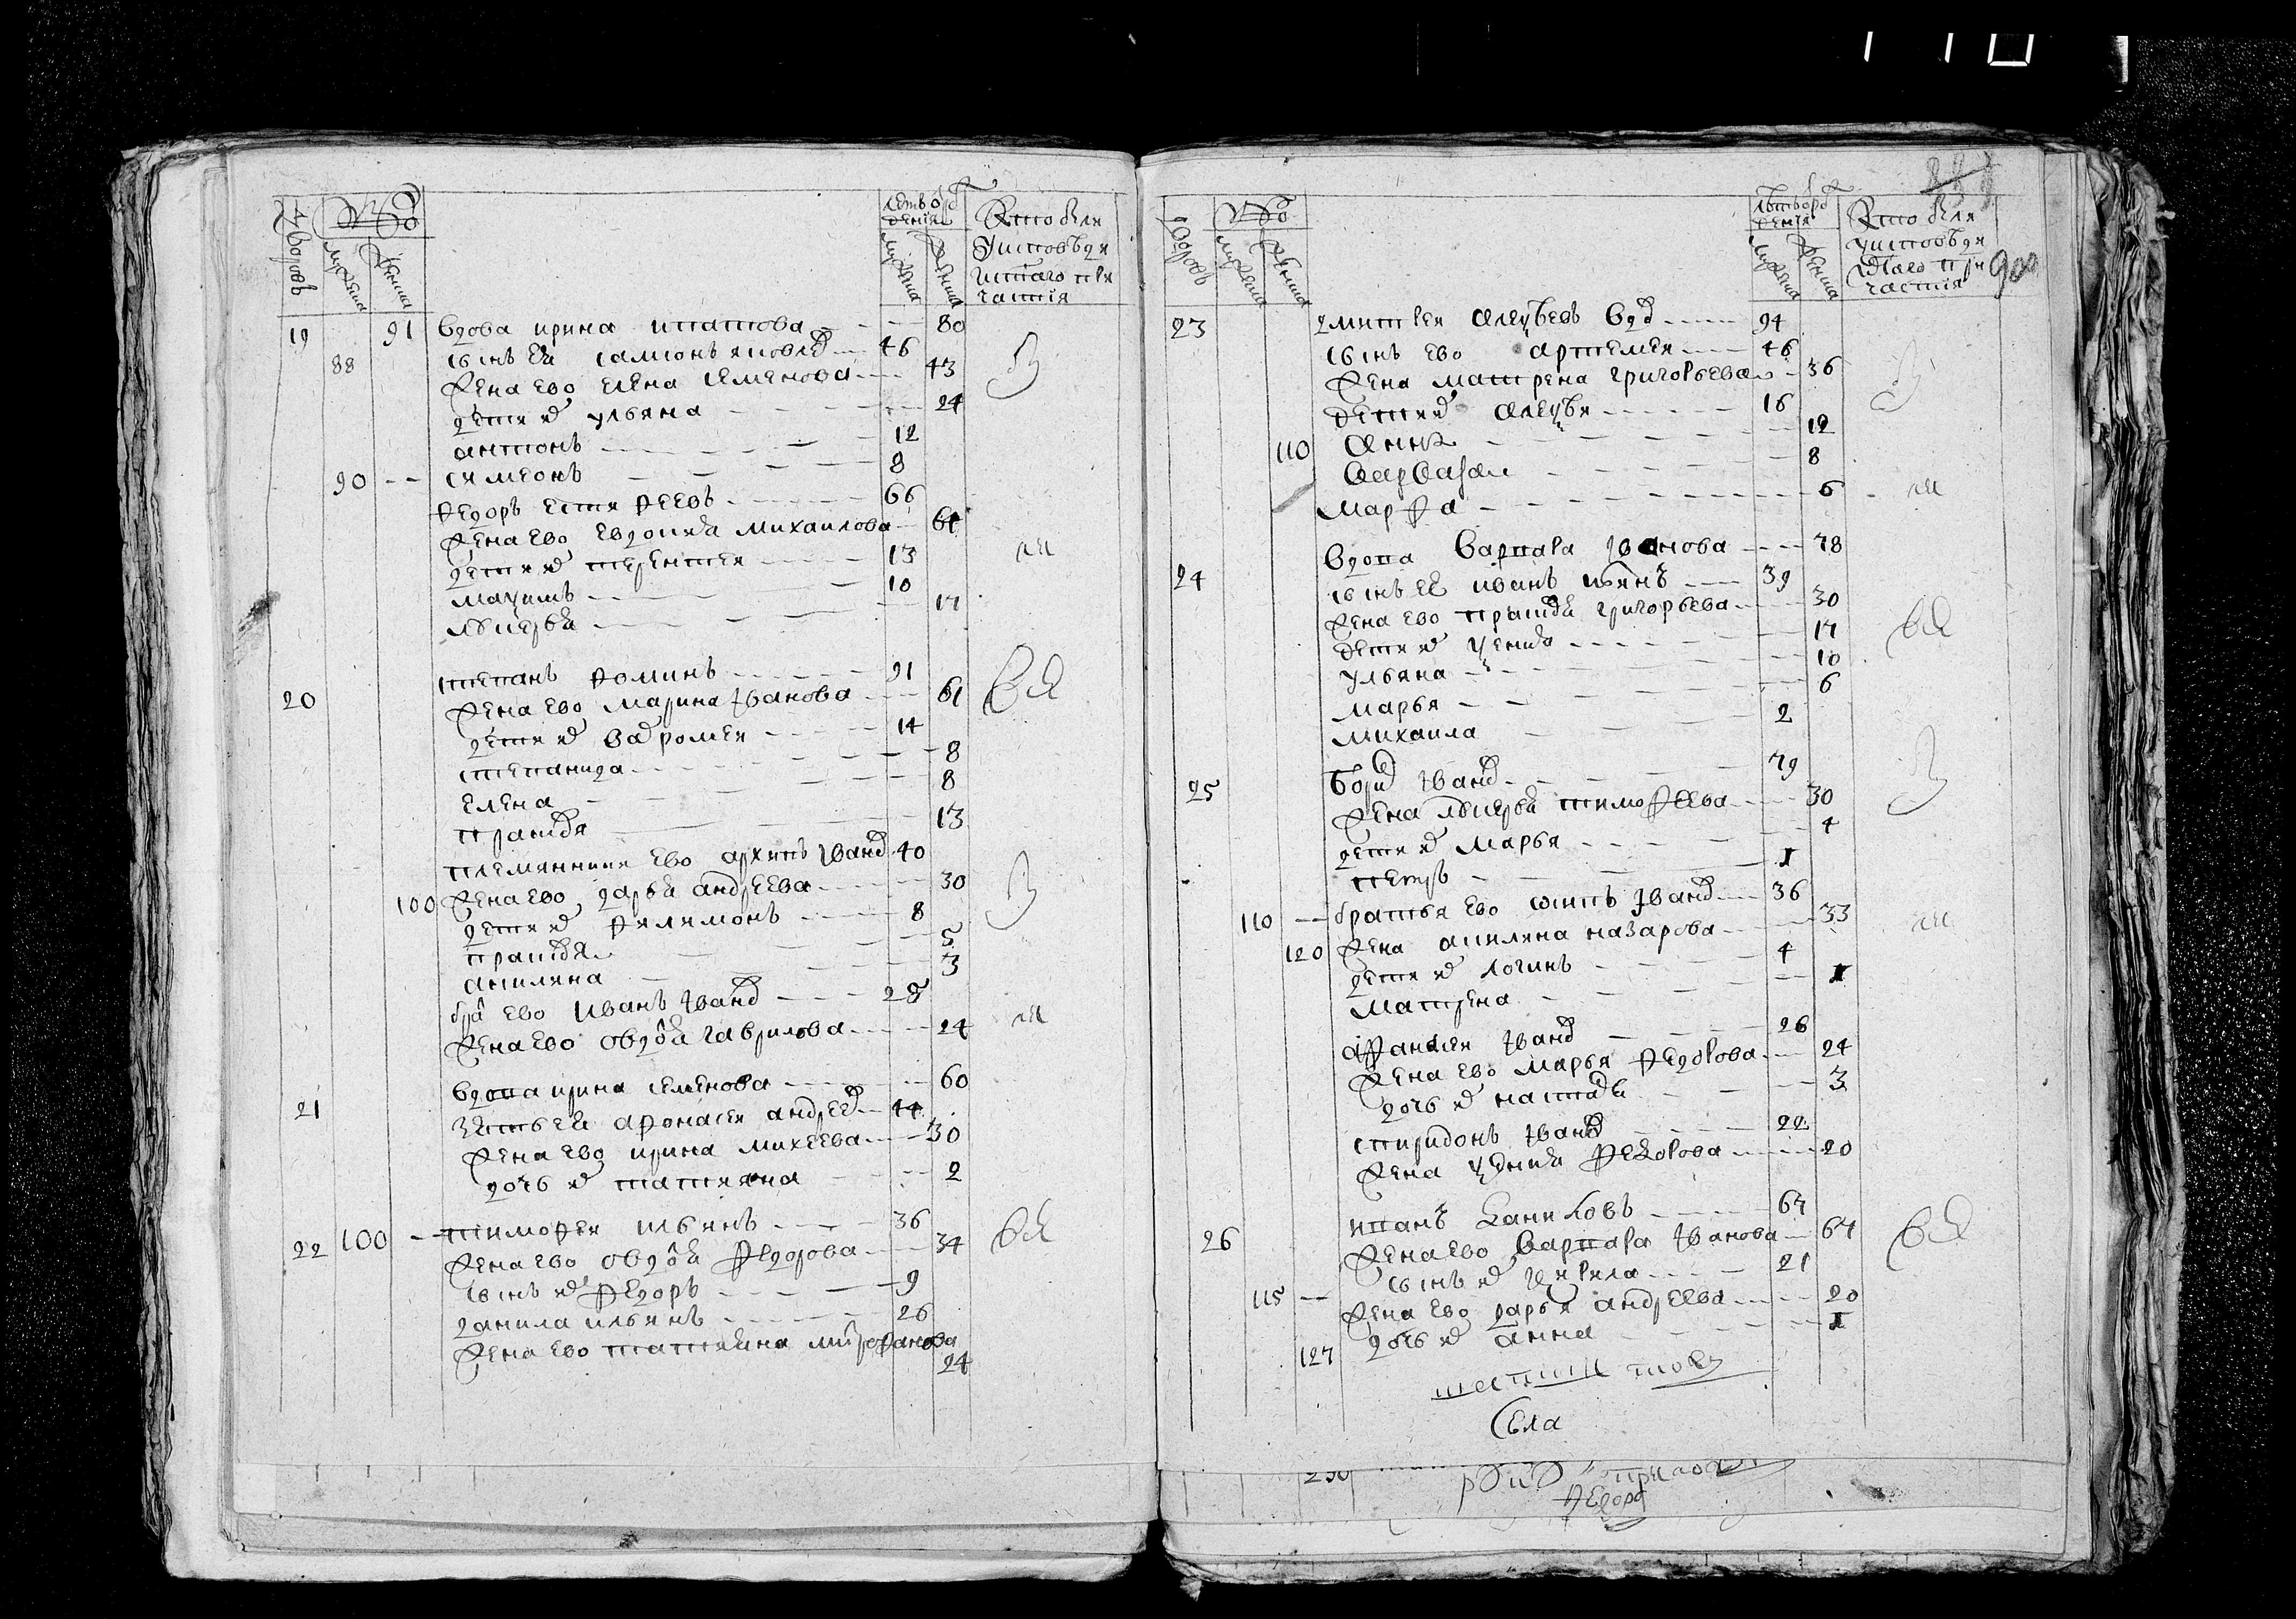 дворовъ
мужеска
женска
мужеска
женска
19 91 вдова ирина ипатова 80
88 сынъ ея самсонъ яковлев 46
жена ево елена семенова 43
дети их ульяна 24
антонъ 12
90 симеонъ 8
федоръ естифеевъ 66
жена ево евдокия михаилова 61
дети их терентеи 13
мацимъ 10
лукерья 17
20 степанъ фоминъ 91
жена ево марина иванова 61
дети их варфоломеи 14
степанида 8
елена 8
прасков 13
племянники ево архипъ иванов 40
100 жена ево дарья андреева 30
дети их филимонъ 8
прасковя 5
акилина 3
брат ево иванъ иванов 28
жена ево овдотя гаврилова 24
21 вдова ирина семенова 60
зять ея афонасеи андреев 44
жена ево ирина михеева 30
дочь их татияна 2
22 100 тимофеи ильинъ 36
жена ево овдотя федорова 34
сынъ их федоръ 9
данила ильинъ 26
жена ево татияна митрофанова
24
дворовъ
мужеска
женска
мужеска
женска
900
23 дмитреи алецъевъ вдов 94
сынъ ево артемеи 46
жена матрена григорьева 36
дети их алецъи 16
110 анна 12
варвара 8
марфа 6
24 вдова варвара иванова 78
сынъ ея иванъ 39
жена ево прасков григорьева 30
дети их цения 17
ульяна 10
марья 6
михаила 2
25 борис иванов 79
жена лукерья тимофеева 30
дети их марья 4
петръ 1
110 братья ево осипъ иванов 36
120 жена акилина назарова 33
дети их логинъ 4
матрена 1
афанасеи иванов 26
жена ево марья федорова 24
дочь их настася 3
спиридонъ иванов 22
жена цения федорова 20
26 иванъ даниловъ 67
жена ево варвара иванова 67
115 сынъ их гаврила 21
жена ево дарья андреева 20
127 дочь их анна 1
села
230
федоръ